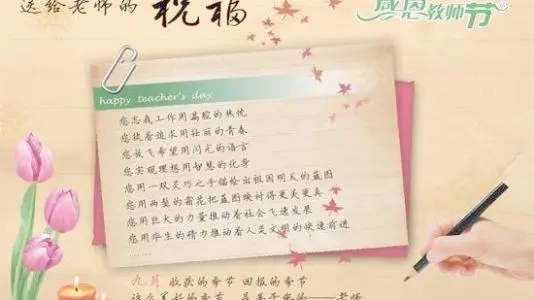 送给老师的祝福
感恩教师节
happy teacher's day
您忘我工作用满腔的热忱
您执着追求用壮丽的青春
您放飞希望用闪光的语言
您实现理想用智慧的化身
您用一双灵巧之手描绘出祖国明天的蓝图
您用两鬓的霜花把蓝图映衬得更美更真
您用巨大的力量推动着社会飞速发展
您用毕生的精力推动着人类文明的快速前进
九月 收获的季节 回报的季节
这么美好的季节 是属于您的——老师